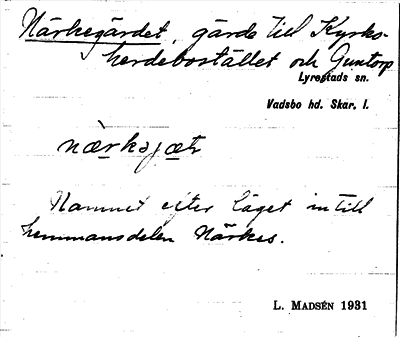 Närkegärdet, gärde till Kyrko-
herdebostället och Guntorp
Lyrestads sn.
Vadsbo hd. Skar. l.
nærkəjæt
Namnet efter läget intill
hemmansdelen Närkes.
L. MADSÉN 1931